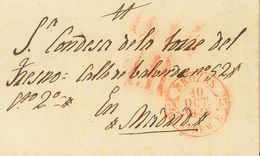 Sª Condesa de la torre del
Fresno = Calle de Valverde nº 52
qto 2º
En
Madrid
10
OCT